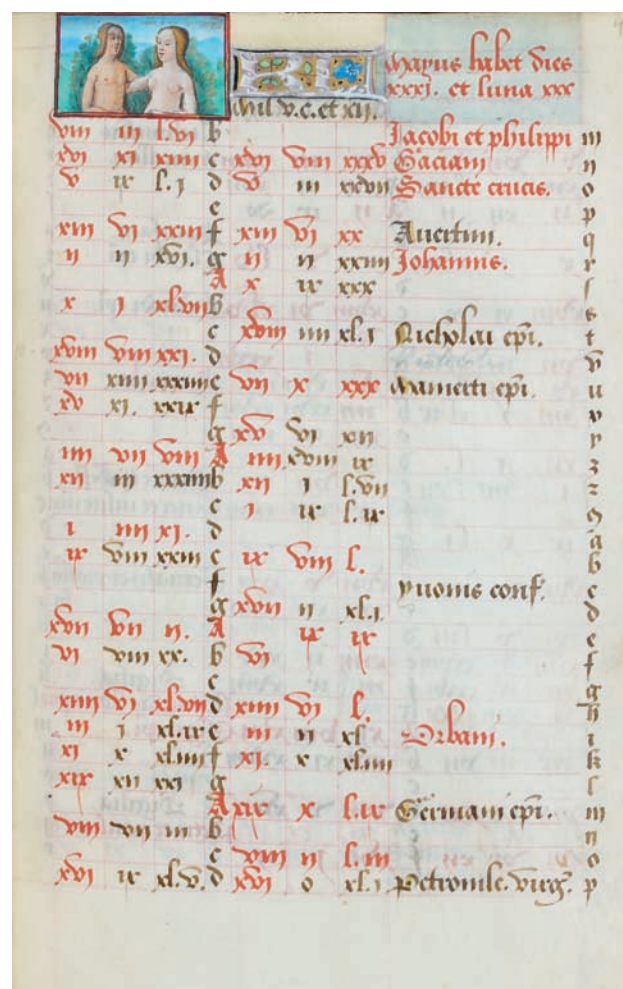 Mayus habet dies
xxxi. et luna xxx
Mil v.c. et xii.
viii iii l.vi b Jacobi et philippi m
xvi xi xiiii c xvi viii xxxv Gaciani n
v ix l.i d v iii xxvii Sancte crucis. o
e p
xiii vi xxiii f xiii vi xx Avertini. q
ii ii xvi. g ii ii xxiiii Johannis. r
A x ix xxx ſ
x i xl.vii b s
c xviii iiii xl.i Nicholai epi. t
xviii viii xxi. d v
vii xiiii xxxiiii e vii x xxx Mamerti epi. u
xv xi. xxix f v
g xv vi xii y
iiii vii viii A iiii xviii ix z
xii iii xxxiiii b xii i l.vii
c i ix l.ix 9
i iiii xi. d a
ix viii xxiii e ix viii l. b
f yvonis conf. c
g xvii ii xl.i. d
xvii vii ii. A ix ix e
vi viii xx. b vi f
c g
xiiii vi xl.vii d xiiii vi l. h
iii i xl.ix e iii ii xl Urbani. i
xi x xl.iiii f xi. x xl.iiii k
xix xii xxi g l
A xix x l.ix Germani epi. m
viii vii iii b n
c viii ii l.iii o
xvi ix xl.v. d xvi o xl.i Petronile. virg. p